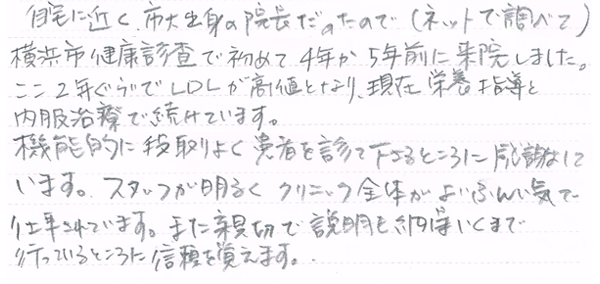 自宅に近く、市大出身の院長だったので(ネットで調べて)
横浜市健康診査で初めて4年か5年前に来院しました。
ここ2年ぐらいでLDLが高値となり、現在栄養指導と
内服治療で続けています。
機能的に段取りよく患者を診て下さるところに感謝して
います。スタッフが明るくクリニック全体がよいふんい気で
仕事されています。また親切で説明も納得いくまで
行っているところに信頼を覚えます。